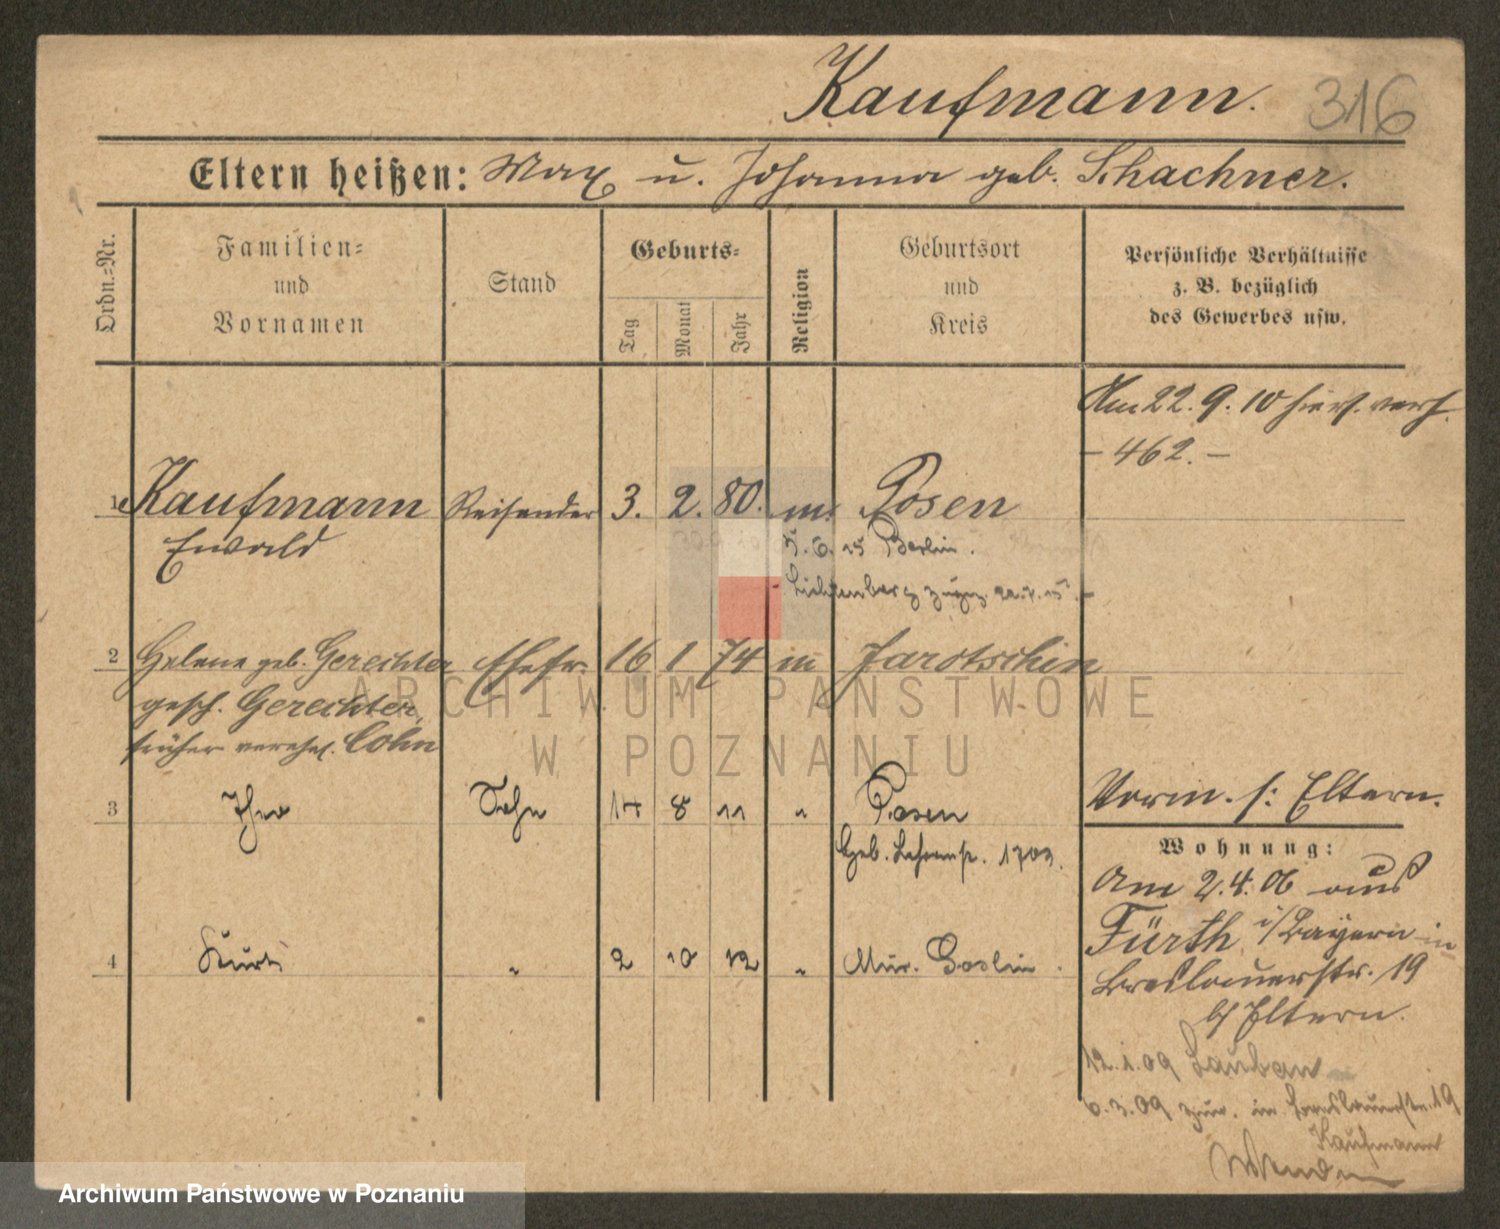 Kaufmann. 316
Eltern heißen: Max u. Johanna geb. Schachner.
Ordn.=Nr.
Familien=
und
Vornamen
Stand
Geburts=
Tag
Monat
Jahr
Religion
Geburtsort
und
Kreis
Persönliche Verhältnisse
z. B. bezüglich
des Gewerbes usw.
Am 22. 9. 10 hier verh.
- 462. -
1 Kaufmann Reisender 3. 2. 80. m. Posen
Ewald
5. 6. 15 Berlin.
Lichtenberg 15.
2 Helene geb. Gerechter Ehefr. 16 1 74 m Jarotschin
gesch. Gerechter,
früher verehel. Cohn
3 Sohn 14 8 11 " Posen
Geb. 1703.
Vorm. s: Eltern.
4 Kurt " 2 10 12 " Mur. Goslin.
Wohnung:
Am 2. 4. 06 aus
Fürth i/Bayern in
Breslauerstr. 19
b/ Eltern.
12. 1. 09 Lauban
6. 3. 09 zur. in Breslauerstr. 19
Kaufmann
ARCHIWUM PAŃSTWOWE
W POZNANIU
Archiwum Państwowe w Poznaniu